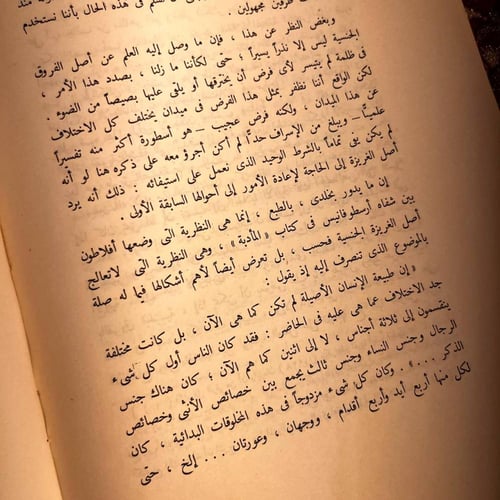 نسلم في هذه الحال بأننا نستخدم
طرفين مجهولين .
وبغض النظر عن هذا ، فإن ما وصل إليه العلم عن أصل الفروق
الجنسية ليس إلا نذراً يسيراً ؛ حتى لكأننا ما زلنا ، بصدد هذا الأمر ،
في ظلمة لم يتيسر لأى فرض أن يخترقها أو يلقى عليها بصيصاً من الضوء .
لكن الواقع أننا نظفر بمثل هذا الفرض في ميدان يختلف كل الاختلاف
عن هذا الميدان ، ولكنه فرض عجيب – هو أسطورة أكثر منه تفسيراً
علمياً – ويبلغ من الإسراف حداً لم أكن أجرؤ معه على ذكره هنا لو أنه
لم يكن يفى تماماً بالشرط الوحيد الذى نعمل على استيفائه : ذلك أنه يرد
أصل الغريزة إلى الحاجة لإعادة الأمور إلى أحوالها السابقة الأولى .
إن ما يدور بخلدى ، بالطبع ، إنما هى النظرية التى وضعها أفلاطون
بين شفاه أرسطوفانيس فى كتاب « المأدبة » ، وهى النظرية التى لاتعالج
أصل الغريزة الجنسية فحسب ، بل تعرض أيضاً لأهم أشكالها فيما له صلة
بالموضوع الذى تنصرف إليه إذ يقول :
« إن طبيعة الإنسان الأصيلة لم تكن كما هى الآن ، بل كانت مختلفة
جد الاختلاف عما هى عليه فى الحاضر : فقد كان الناس أول كل شىء
ينقسمون إلى ثلاثة أجناس ، لا إلى اثنين كما هم الآن ؛ كان هناك جنس
الرجال وجنس النساء وجنس ثالث يجمع بين خصائص الأنثى وخصائص
الذكر . . . » . وكان كل شىء مزدوجاً فى هذه المخلوقات البدائية ، كان
لكل منها أربع أيد وأربع أقدام ، ووجهان ، وعورتان . . . إلخ ، حتى